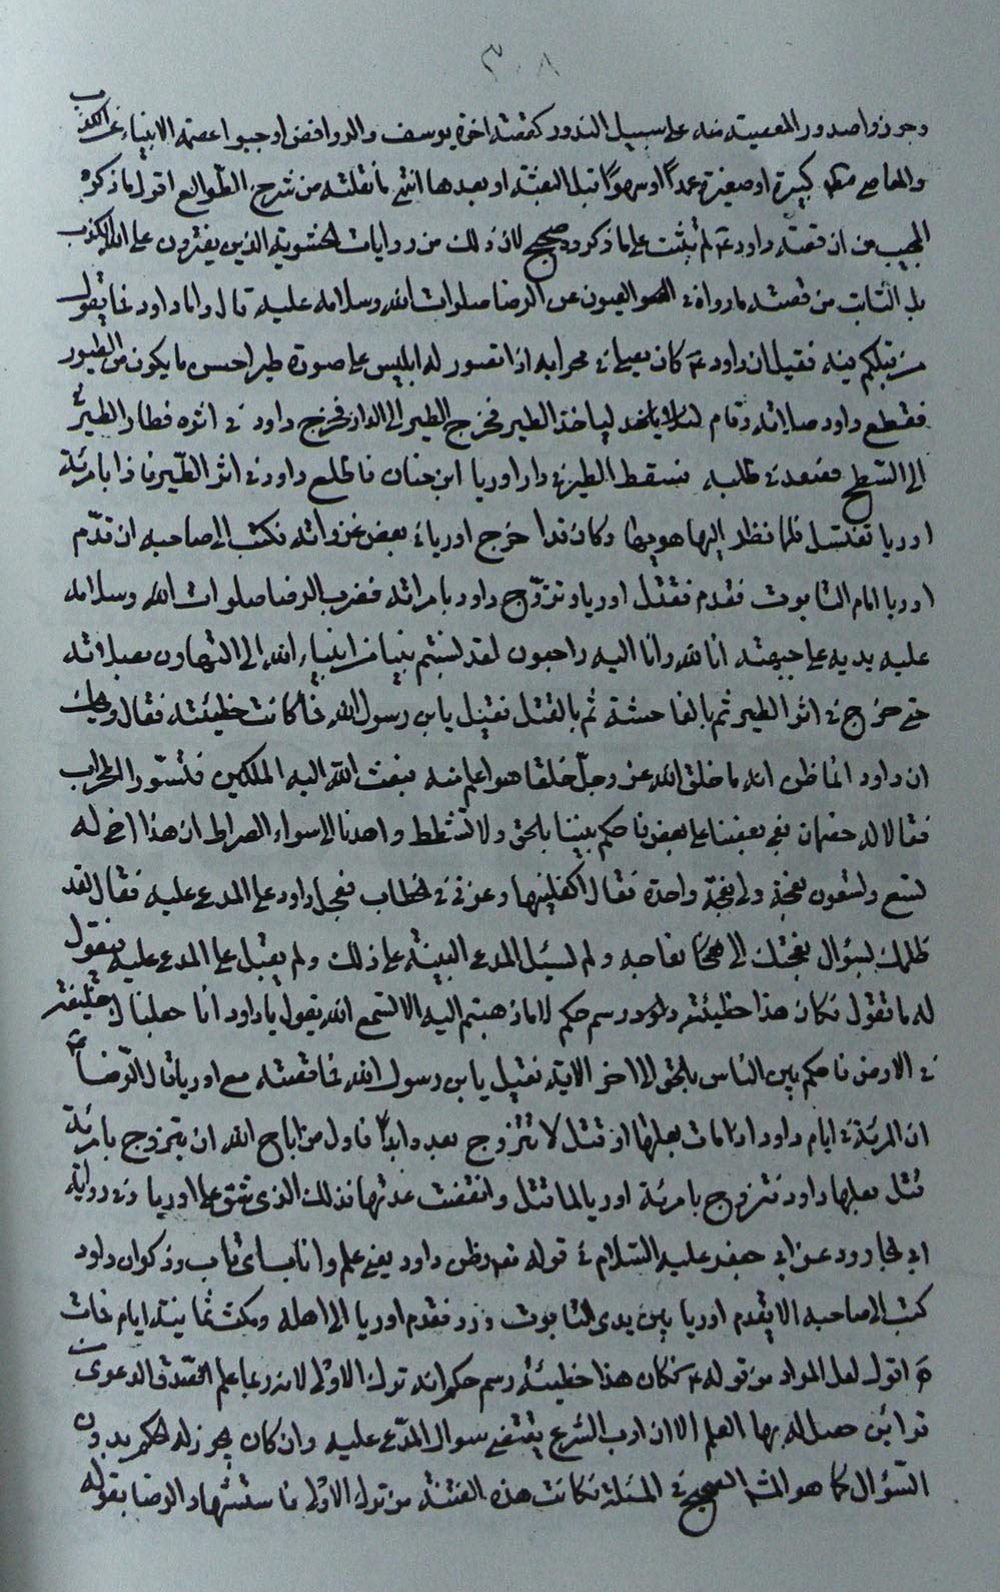 ٣٠٨
وجوزوا صدور المعصية منه على سبيل الندور كقصة اخوة يوسف والروافض اوجبوا عصمة الانبياء عن الكذب
والمعاصي كبيرة او صغيرة عمداً او سهواً قبل البعثة او بعدها انتهى ما نقلته من شرح الطوالع اقول ما ذكره
المجيب من ان قصة داود ع لم تثبت على ما ذكروه صحيح لان ذلك من روايات الحشوية الذين يفترون على الله الكذب
بل الثابت من قصته ما رواه في العيون عن الرضا صلوات الله وسلامه عليه قال واما داود فما يقول
من قبلكم فيه فقيل ان داود ع كان يصلي في محرابه اذ اتصور له ابليس على صورة طير احسن ما يكون من الطيور
فقطع داود صلاته وقام لياخذ الطير فخرج الطير الى الدار فخرج داود في اثره فطار الطير
الى السطح فصعد في طلبه فسقط الطير في دار اوريا ابن حنان فاطلع داود في اثر الطير فاذا بامرئة
اوريا تغتسل فلما نظر اليها هويها وكان قد اخرج اوريا في بعض غزواته فكتب الى صاحبه ان قدّم
اوريا امام التابوت فقدم فقتل اوريا وتزوّج داود بامراته فضرب الرضا صلوات الله وسلامه
عليه بيديه على جبهته انا لله وانا اليه راجعون لقد نسبتم نبيا من انبياء الله الى التهاون بصلاته
حتى خرج في اثر الطير ثم بالفاحشة ثم بالقتل فقيل يابن رسول الله فما كانت خطيئته فقال ويحك
ان داود انما ظن انه ما خلق الله عز وجل خلقا هو اعلم منه فبعث الله اليه الملكين فتسوّر المحراب
فقالا له خصمان بغى بعضنا على بعض فاحكم بيننا بالحق ولا تشطط واهدنا الى سواء الصراط ان هذا اخي له
تسع وتسعون نعجة ولي نعجة واحدة فقال اكفلنيها وعزني في الخطاب فعجل داود على المدعى عليه فقال لقد
ظلمك بسؤال نعجتك الى نعاجه ولم يسئل المدعي البينة على ذلك ولم يقبل على المدعى عليه فيقول
له ما تقول فكان هذا خطيئته رسم حكم لا ما ذهبتم اليه الا تسمع الله يقول يا داود انا جعلناك خليفة
في الارض فاحكم بين الناس بالحق الى اخر الاية فقيل يابن رسول الله فما قصته مع اوريا قال الرضا ع
ان المرئة في ايام داود اذا مات بعلها او قتل لا تتزوج بعده ابداً فاول من اباح الله ان يتزوج بامرئة
قتل بعلها داود فتزوج بامرئة اوريا لما قتل وانقضت عدتها فذلك الذي شق على اوريا وفي رواية
ابي الجارود عن ابي جعفر عليه السلام في قوله وظن داود يعني علم واناب اي تاب وذكر ان داود
كتب الى صاحبه الا يقدم اوريا بين يدي التابوت ورد فقدم اوريا الى اهله ومكث ثمانية ايام ثم مات
اقول لعل المراد من قوله ع فكان هذا خطيئة رسم حكم انه ترك الاولى لانه ربما علم الصدق الدعوى من
قرائن حصل له بها العلم الا ان ادب الشرع يقتضي سوال المدّعى عليه وان كان يجوز له الحكم بدون
السّؤال كما هو الصحيح في المسئلة فكانت هذه الفتنة من ترك الاولى فاستشهاد الرضا بقوله